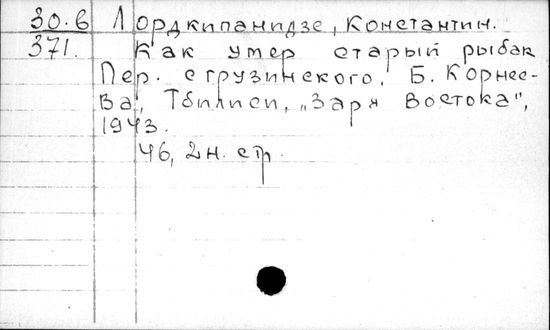 30.6 Лордкипанидзе, Константин.
371. Как умер старый рыбак
Пер. с грузинского, Б. Корнее-
ва, Тбилиси, „Заря Востока",
1943.
46, 2н. стр.